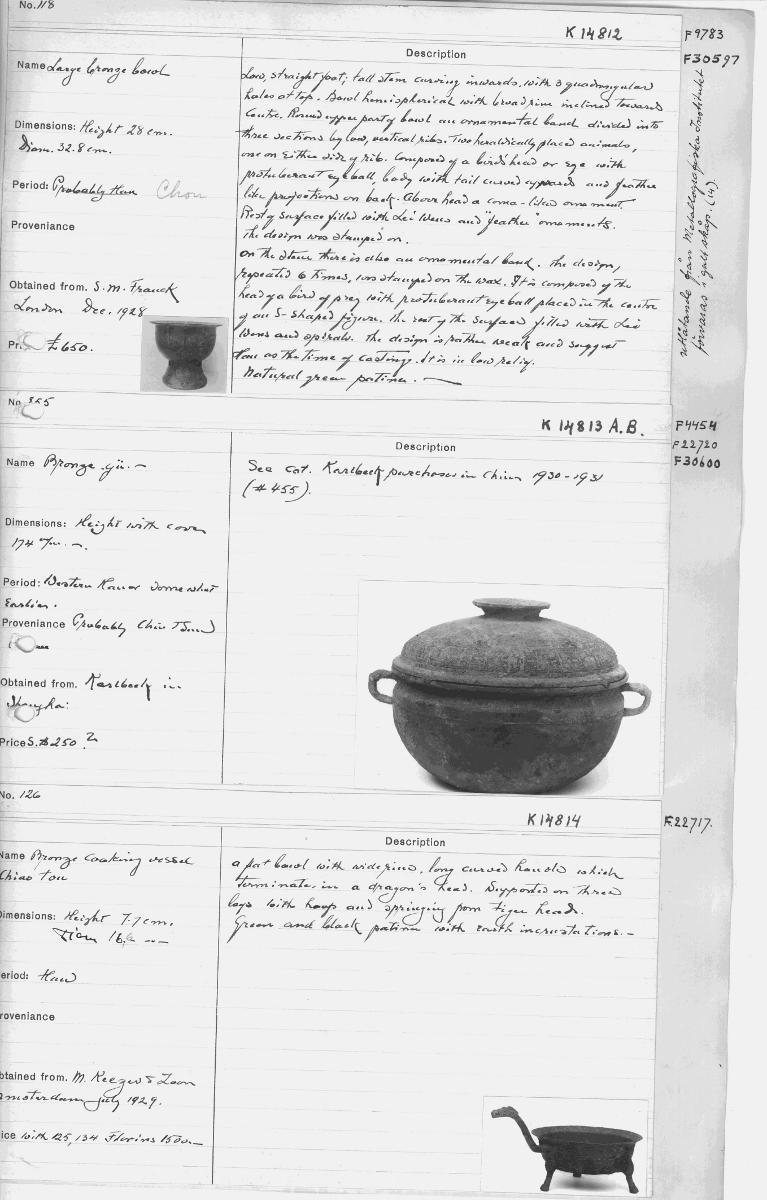 No. 118
K 14812
F9783
F30597
Name Large bronze bowl
Dimensions: Height 28 cm.
Diam. 32.8 cm.
Period: Probably Han Chou
Proveniance
Obtained from. S. M. Franck
London Dec. 1928
£650.
Description
Low, straight foot; tall stem curving inwards, with 3 quadrangular
holes at top. Bowl hemispherical with broad rim inclined towards
centre. Round upper part of bowl an ornamental band divided into
three sections by low, vertical ribs. Two heraldically placed animals,
one on either side of rib. Composed of a bird's head or eye with
protuberant eyeball, body with tail curved upwards and feather
like projections on back. Above head a coma-like ornament.
Rest of surface filled with Lei Wens and "feather" ornaments.
The design was stamped on.
On the stem there is also an ornamental band. The design,
repeated 6 times, was stamped on the wax. It is composed of the
head of a bird of prey with protuberant eyeball placed in the centre
of an S-shaped figure. The rest of the surface filled with Lei
Wens and spirals. The design is rather weak and suggest
Han as the time of casting. It is in low relief.
Natural green patina.
från Metallografiska Institutet
förvaras i gult skåp. (14).
No 555
K 14813 A.B.
F4454
F22720
F30600
Name Bronze yü.
Dimensions: Height with cover
174 m/m.
Period: Western Han or somewhat
earlier.
Proveniance Probably Chin T'sun
Obtained from. Karlbeck in
Shanghai
Price S.$ 250 ?
Description
See cat. Karlbeck purchases in China 1930-1931
(# 455).
No. 126
K 14814
F.22717.
Name Bronze Cooking vessel
Chiao tou
Dimensions: Height 7.7 cm.
Diam 16.
Period: Han
Proveniance
Obtained from. M. Keezer & Zoon
Amsterdam July 1929.
Price with 125, 134 Florins 1500.
Description
a pot bowl with wide rim, long curved handle which
terminates in a dragon's head. Supported on three
legs with hoofs and springing from tiger heads.
Green and black patina with earth incrustations.